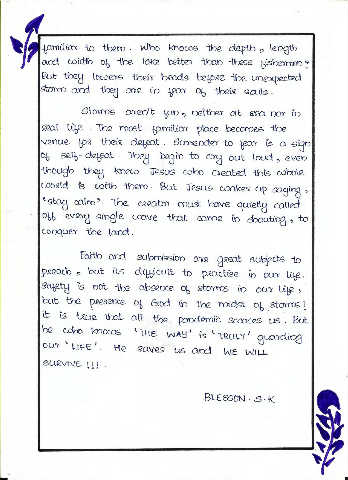 familiar to them. Who knows the depth, length
and width of the lake better than these fishermen?
But they lowers their heads before the unexpected
storm and they are in fear of their souls.
Storms aren't fun, neither at sea nor in
real life. The most familiar place becomes the
venue for their defeat. Surrender to fear is a sign
of self-defeat. They begin to cry out loud, even
though they know Jesus who created this whole
world is with them. But Jesus wakes up saying,
"stay calm" The creator must have quietly called
off every single wave that came in shouting, to
conquer the land.
Faith and submission are great subjects to
preach, but its difficult to practise in our life.
Safety is not the absence of storms in our life,
but the presence of God in the midst of storms!
it is true that all the pandemic scares us. But
he who knows 'THE WAY' is 'TRULY' guarding
our 'LIFE'. He saves us and WE WILL
SURVIVE !!!.
BLESSON . S . K